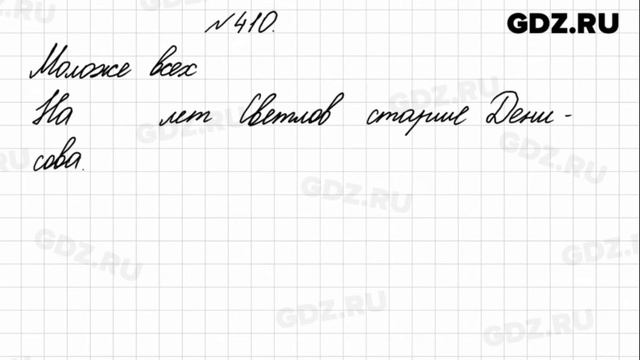 №410.
GDZ.RU
Моложе всех
На лет Светлов старше Дени-
сова.
GDZ.RU
GDZ.RU
GDZ.RU
GDZ.RU
GDZ.RU
GDZ.RU
GDZ.RU